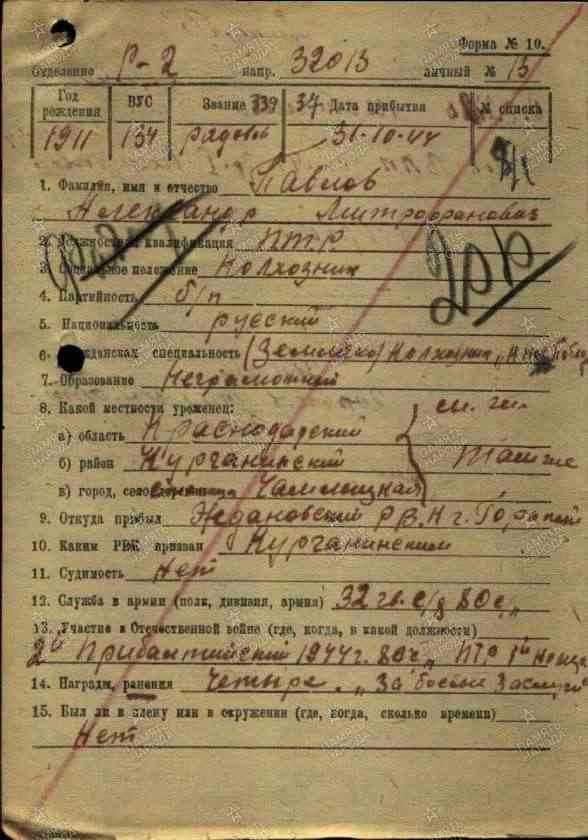 Форма № 10.
Отделение Р-2 напр. 32013 личный № 13
Год рождения ВУС Звание 339 34 Дата прибытия № списка
1911 134 рядовой 31-10-44
1. Фамилия, имя и отчество Павлов
Александр Митрофанович
2. Должность и квалификация ПТР
3. Социальное положение Колхозник
4. Партийность б/п
5. Национальность русский
6. Гражданская специальность Колхозник
7. Образование Неграмотный
8. Какой местности уроженец:
а) область Краснодарский
б) район Курганинский Там же
в) город, село Чамлыцкая
9. Откуда прибыл Ждановский
10. Каким РВК призван Курганинским
11. Судимость Нет
12. Служба в армии (полк, дивизия, армия) 32 гв. с/д 80 с/п
13. Участие в Отечественной войне (где, когда, в какой должности)
2й Прибалтийский 1944г. ПТР 1й номер
14. Награды, ранения Четыре. „За боевые Заслуги"
15. Был ли в плену или в окружении (где, когда, сколько времени)
Нет